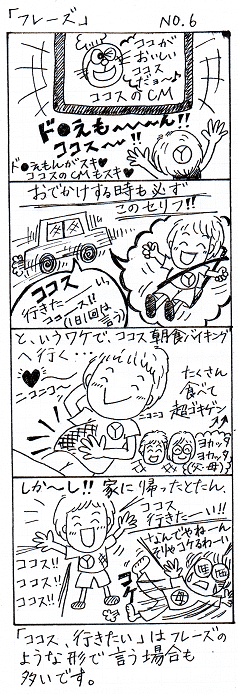 「フレーズ」
NO.6
ココが
おいしい
ココス
ココスのCM
ド●えも〜〜〜ん!!
ココス〜!!
ド●えもんがスキ♥
ココスのCMもスキ♥
おでかけする時も必ず
このセリフ!!
ココス
行きたーい
ココース!!
(1日1回は言う)
と、いうワケで、ココス朝食バイキング
へ行く…
ニコニコ〜
ニコニコ
たくさん
食べて
超ゴキゲン
ヨカッタ
ヨカッタ
(父・母)
しか〜し!!家に帰ったとたん、
ココス
行きたーい!!
なんでやねーん
そりゃコケるわーい
ココス!!
ココス!!
ココス!!
コケ
「ココス、行きたい」はフレーズの
ような形で言う場合も
多いです。